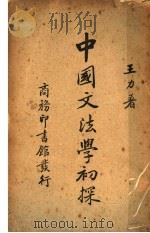 王力著
中國文法學初探
商務印書館發行
www.mtoou.info